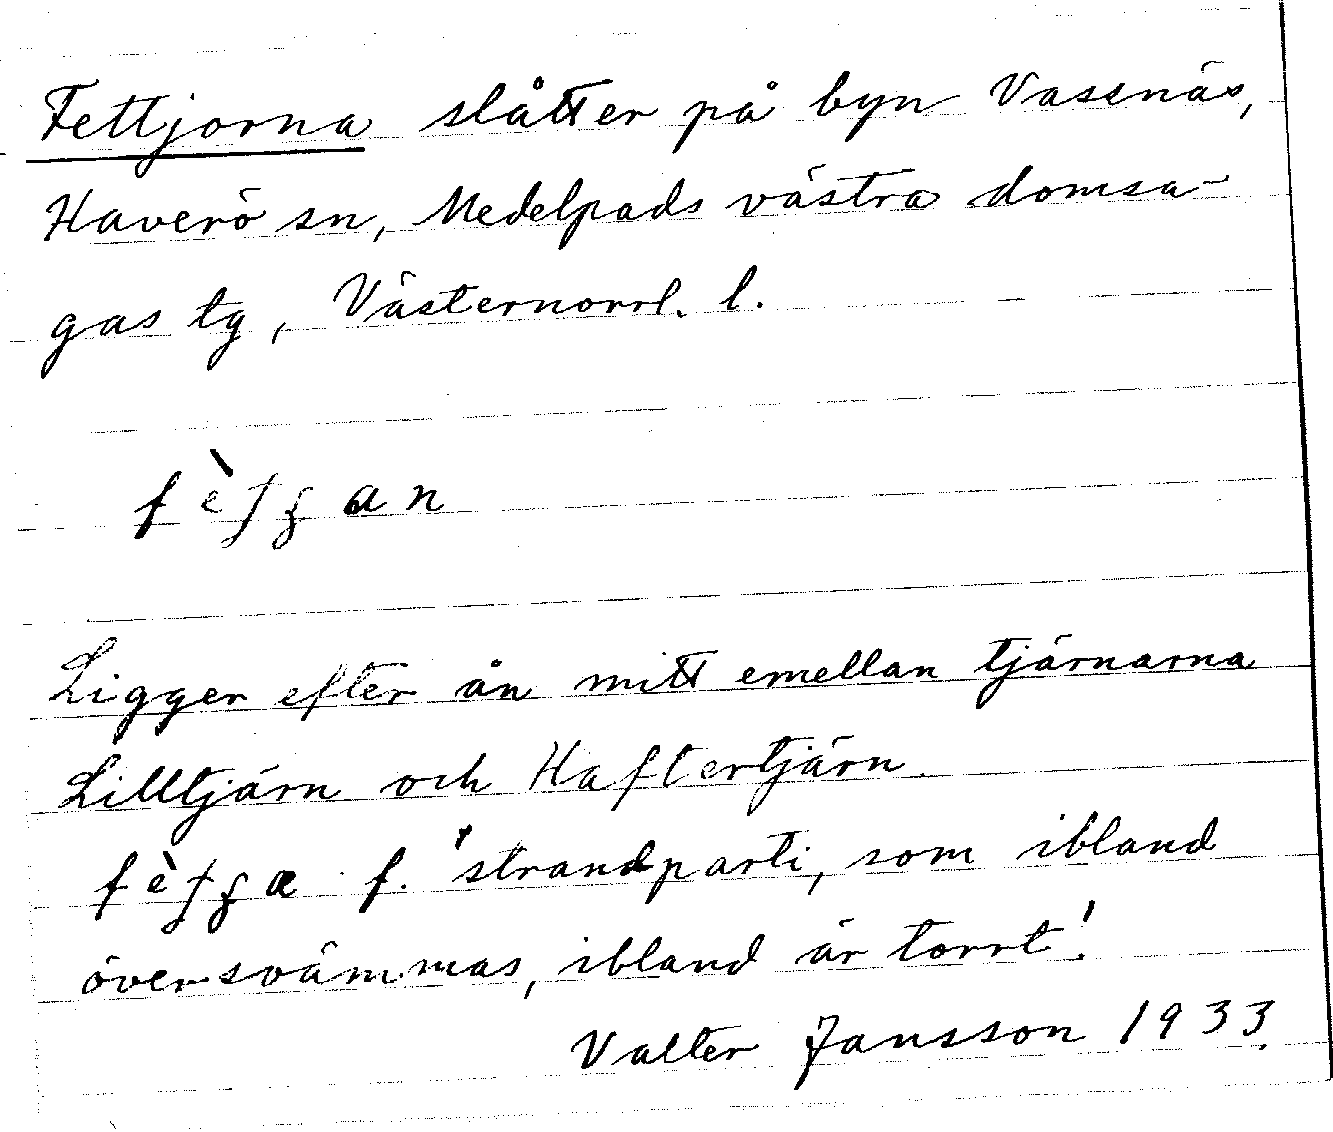 Fettjorna slåtter på byn Vassnäs,
Haverö sn, Medelpads västra domsa-
gas tg, Västernorrl. l.
Ligger efter ån mitt emellan tjärnarna
Lilltjärn och Haftertjärn.
f. 'strandparti, som ibland
översvämmas, ibland är torrt'.
Valter Jansson 1933.